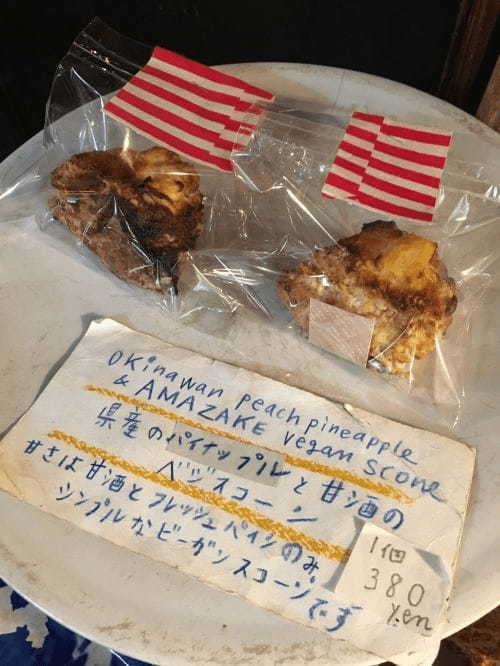 OKinawan peach pineapple
& AMAZAKE vegan scone
県産のパイナップルと甘酒の
ベジスコーン
甘さは甘酒とフレッシュパインのみ
シンプルなビーガンスコーンです
1個
380
yen